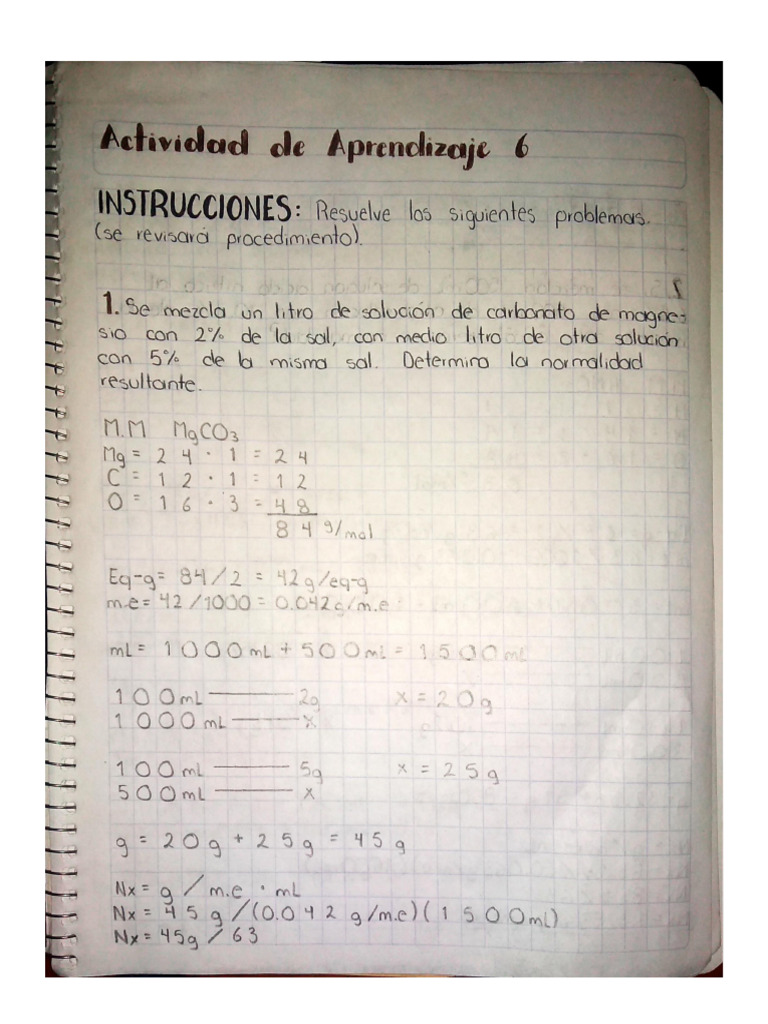 Actividad de Aprendizaje 6
INSTRUCCIONES: Resuelve los siguientes problemas.
(se revisará procedimiento).
1. Se mezcla un litro de solución de carbonato de magne-
sio con 2% de la sal, con medio litro de otra solución
con 5% de la misma sal. Determina la normalidad
resultante.
M.M MgCO3
Mg = 24 · 1 = 24
C = 12 · 1 = 12
O = 16 · 3 = 48
84 g/mol
Eq-g = 84/2 = 42g/eq-g
m.e = 42/1000 = 0.042g/m.e
mL = 1000mL + 500mL = 1500mL
100mL —— 2g x = 20g
1000mL —— x
100mL —— 5g x = 25g
500mL —— x
g = 20g + 25g = 45g
Nx = g / m.e · mL
Nx = 45g/(0.042 g/m.e)(1500mL)
Nx = 45g / 63